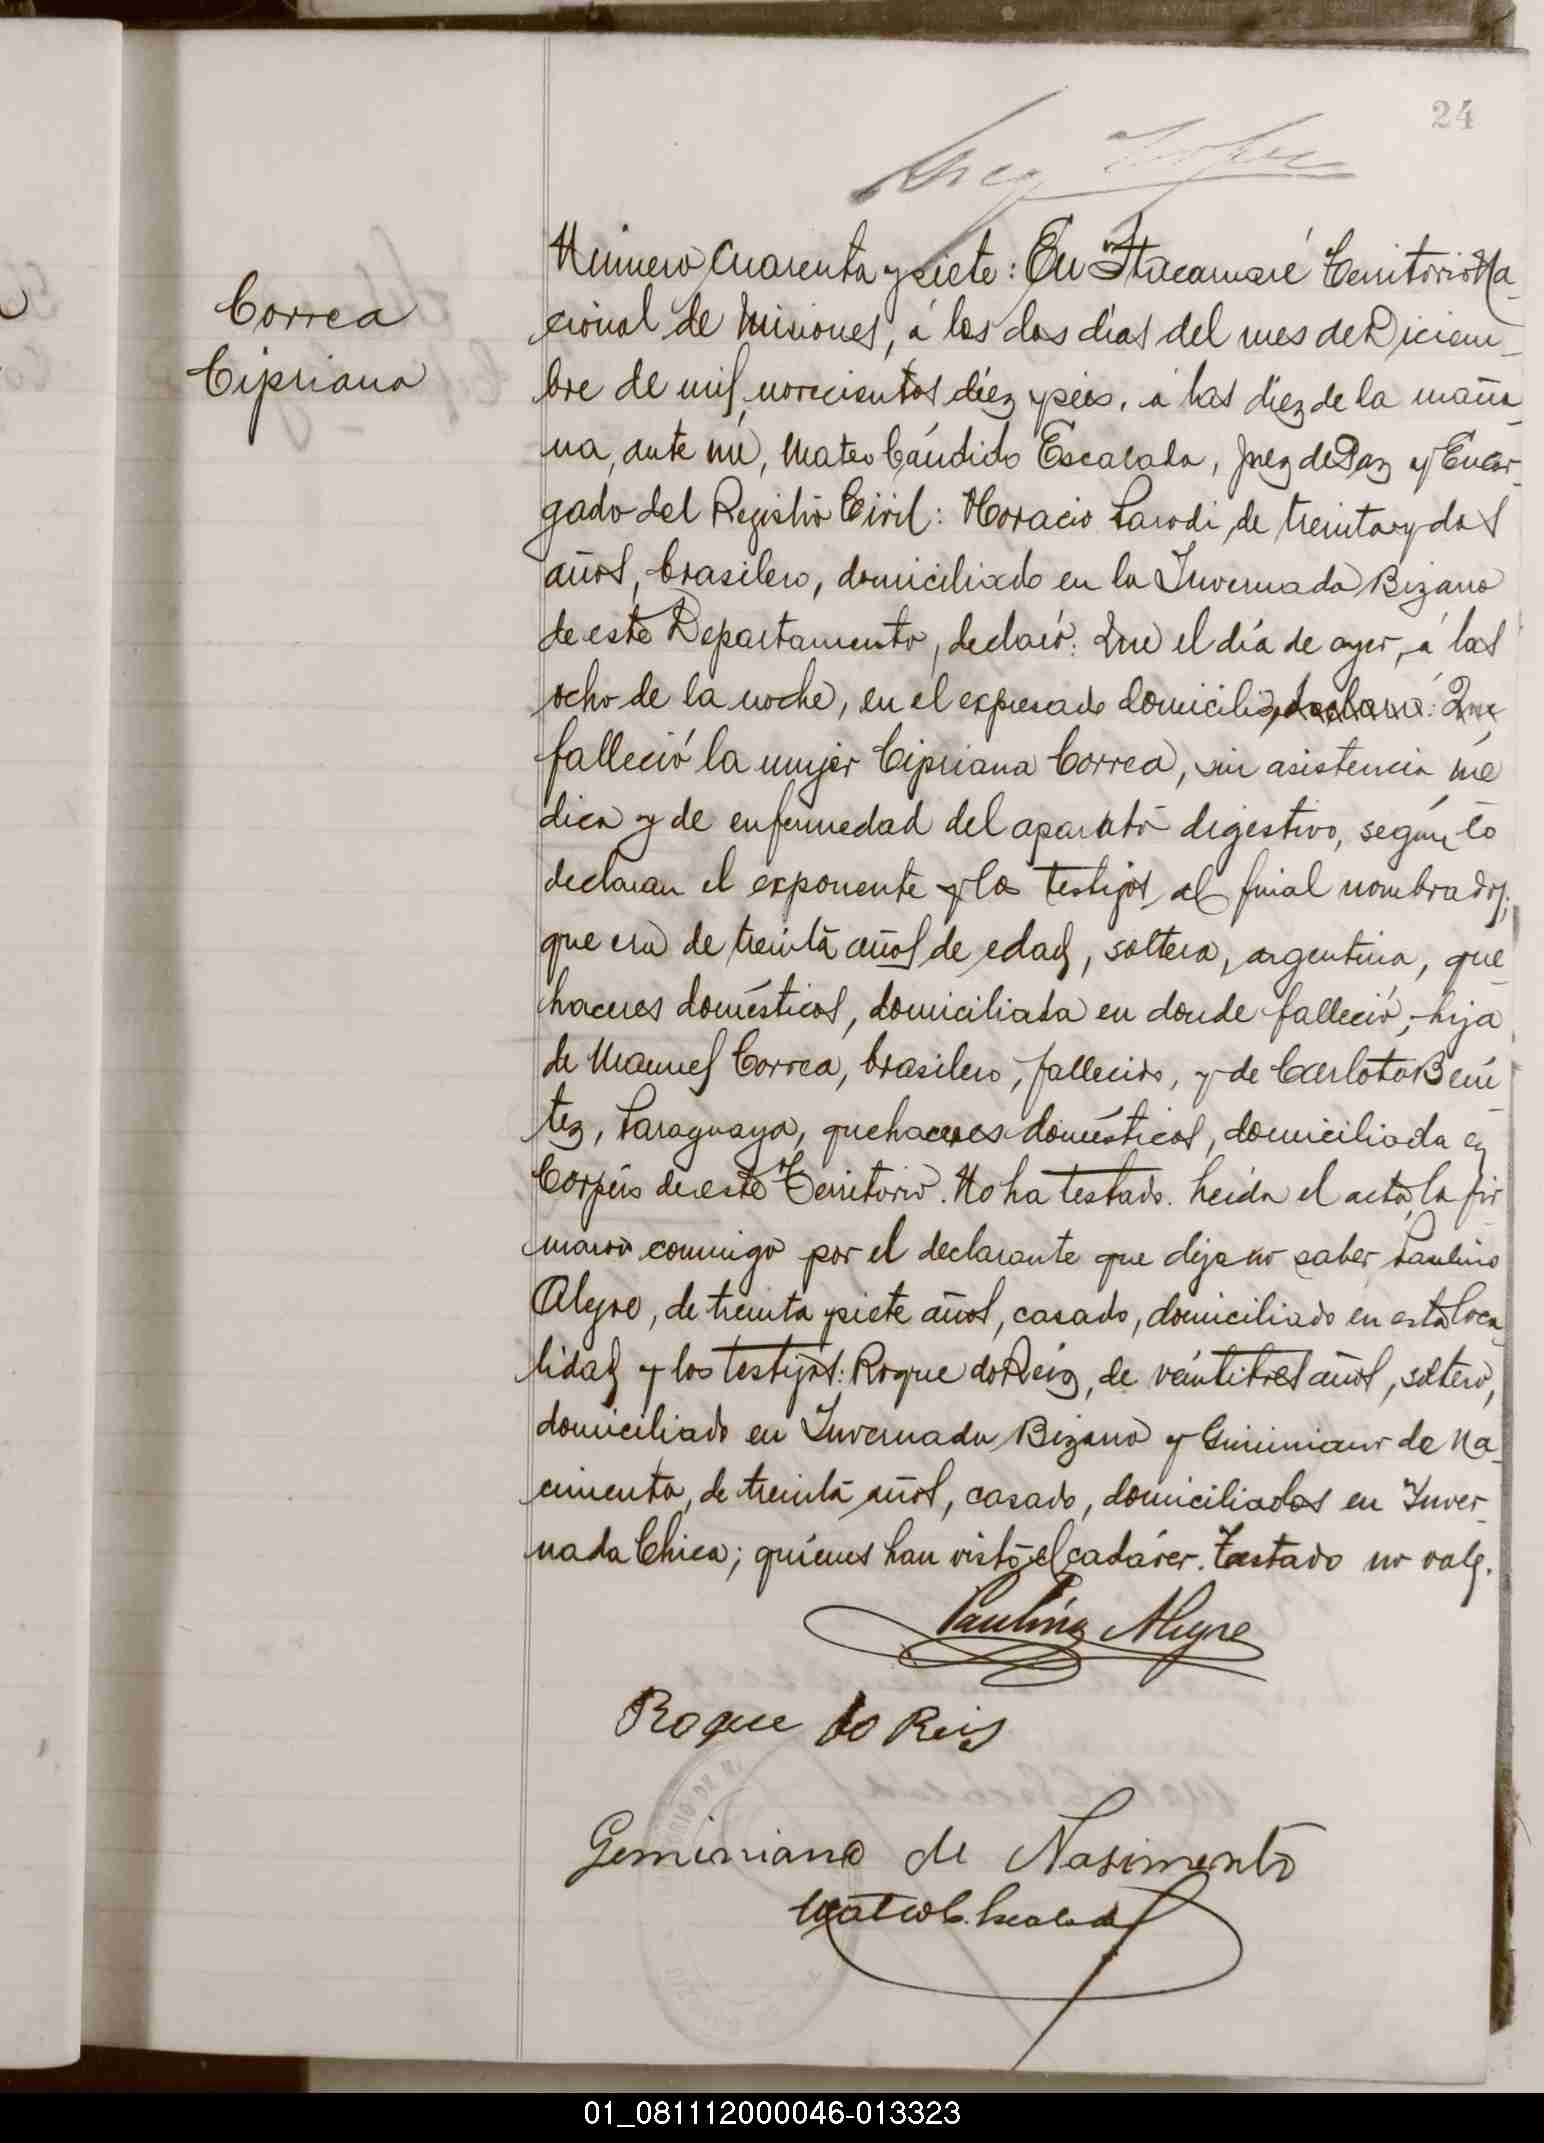 24
Correa
Cipriana
Número cuarenta y siete: En Itacaruaré Territorio Na-
cional de Misiones, á los dos días del mes de Diciem-
bre de mil novecientos diez y seis, á las diez de la maña-
na, ante mí, Mateo Cándido Escalada, Juez de Paz y Encar-
gado del Registro Civil: Horacio Parodi, de treinta y dos
años, brasilero, domiciliado en la Invernada Bizarro
de este Departamento, declaró: Que el día de ayer, á las
ocho de la noche, en el expresado domicilio, declara: Que,
falleció la mujer Cipriana Correa, sin asistencia mé
dica y de enfermedad del aparato digestivo, según lo
declaran el exponente y los testigos al final nombrados;
que era de treinta años de edad, soltera, argentina, que-
haceres domésticos, domiciliada en donde falleció; hija
de Manuel Correa, brasilero, fallecido, y de Carlota Bení
tez, Paraguaya, quehaceres domésticos, domiciliada en
Corpus de este Territorio. No ha testado. Leída el acta, la fir-
maron conmigo por el declarante que dijo no saber, Paulino
Alegre, de treinta y siete años, casado, domiciliado en esta loca-
lidad y los testigos: Roque do Reiz, de veintitres años, soltero,
domiciliado en Invernada Bizarro y Giminiano de Na-
cimento, de treinta años, casado, domiciliados en Inver-
nada Chica; quienes han visto el cadáver. Testado no vale.
Paulino Alegre
Roque do Reis
Geminiano de Nasimento
Mateo C. Escalada
01_081112000046-013323